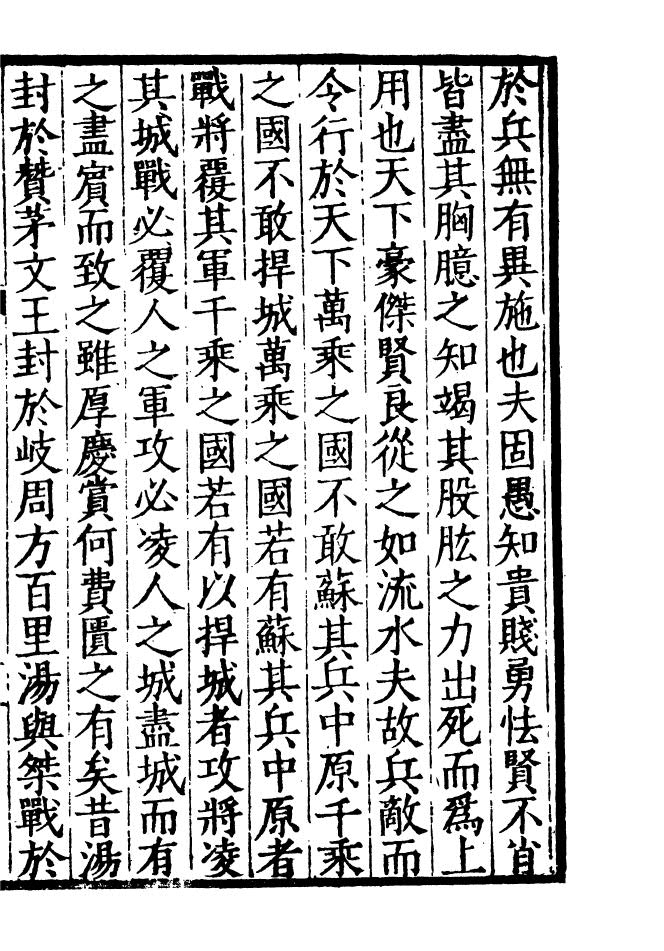 於兵無有異施也夫固愚知貴賤勇怯賢不肖
皆盡其胸臆之知竭其股肱之力出死而爲上
用也天下豪傑賢良從之如流水夫故兵敵而
令行於天下萬乘之國不敢蘇其兵中原千乘
之國不敢捍城萬乘之國若有蘇其兵中原者
戰將覆其軍千乘之國若有以捍城者攻將凌
其城戰必覆人之軍攻必凌人之城盡城而有
之盡賔而致之雖厚慶賞何費匱之有矣昔湯
封於贊茅文王封於岐周方百里湯與桀戰於